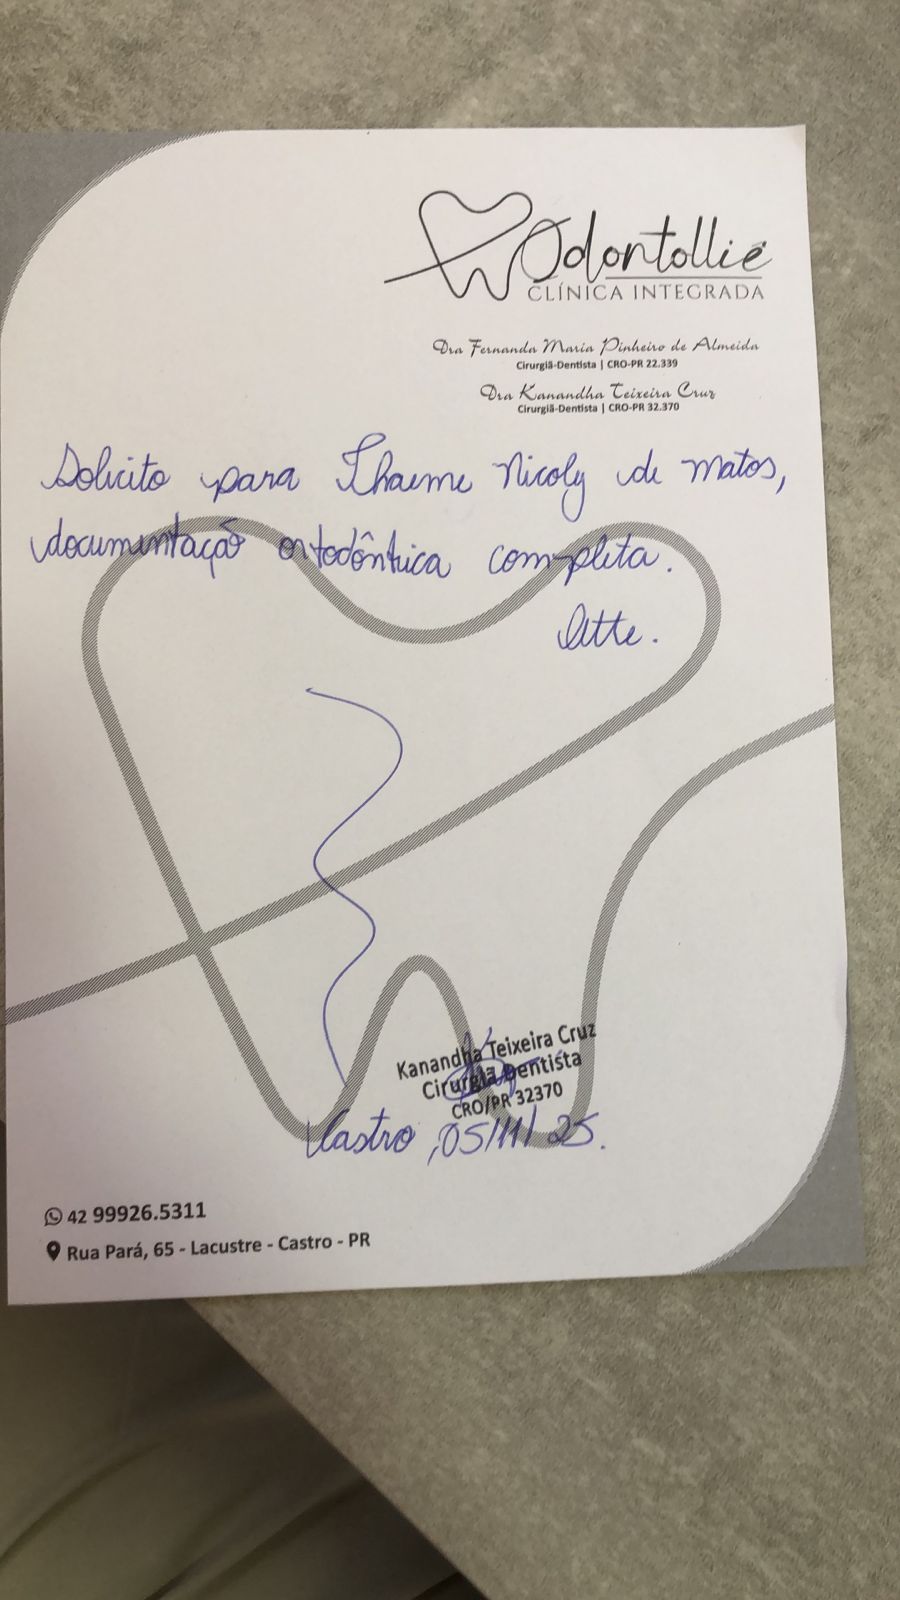 Odontollié
CLÍNICA INTEGRADA
Dra Fernanda Maria Pinheiro de Almeida
Cirurgiã-Dentista | CRO-PR 22.339
Dra Kanandha Teixeira Cruz
Cirurgiã-Dentista | CRO-PR 32.370
Solicito para Thaeme Nicoly de Matos,
documentação ortodôntica completa.
Atte.
Kanandha Teixeira Cruz
Cirurgiã Dentista
CRO/PR 32370
Castro, 05/11/25.
42 99926.5311
Rua Pará, 65 - Lacustre - Castro - PR